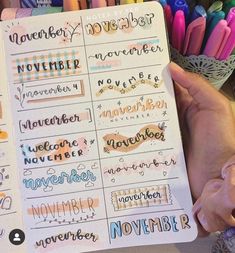 november
november
NOVEMBER
november
november
november
november
november
NOVEMBER
november
welcome
NOVEMBER
november
november
november
NOVEMBER
november
NOVEMBER
november